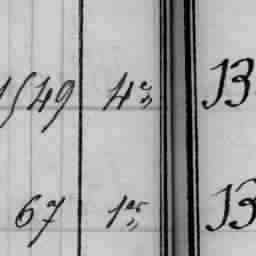 1549 4e 13
67 1er 13